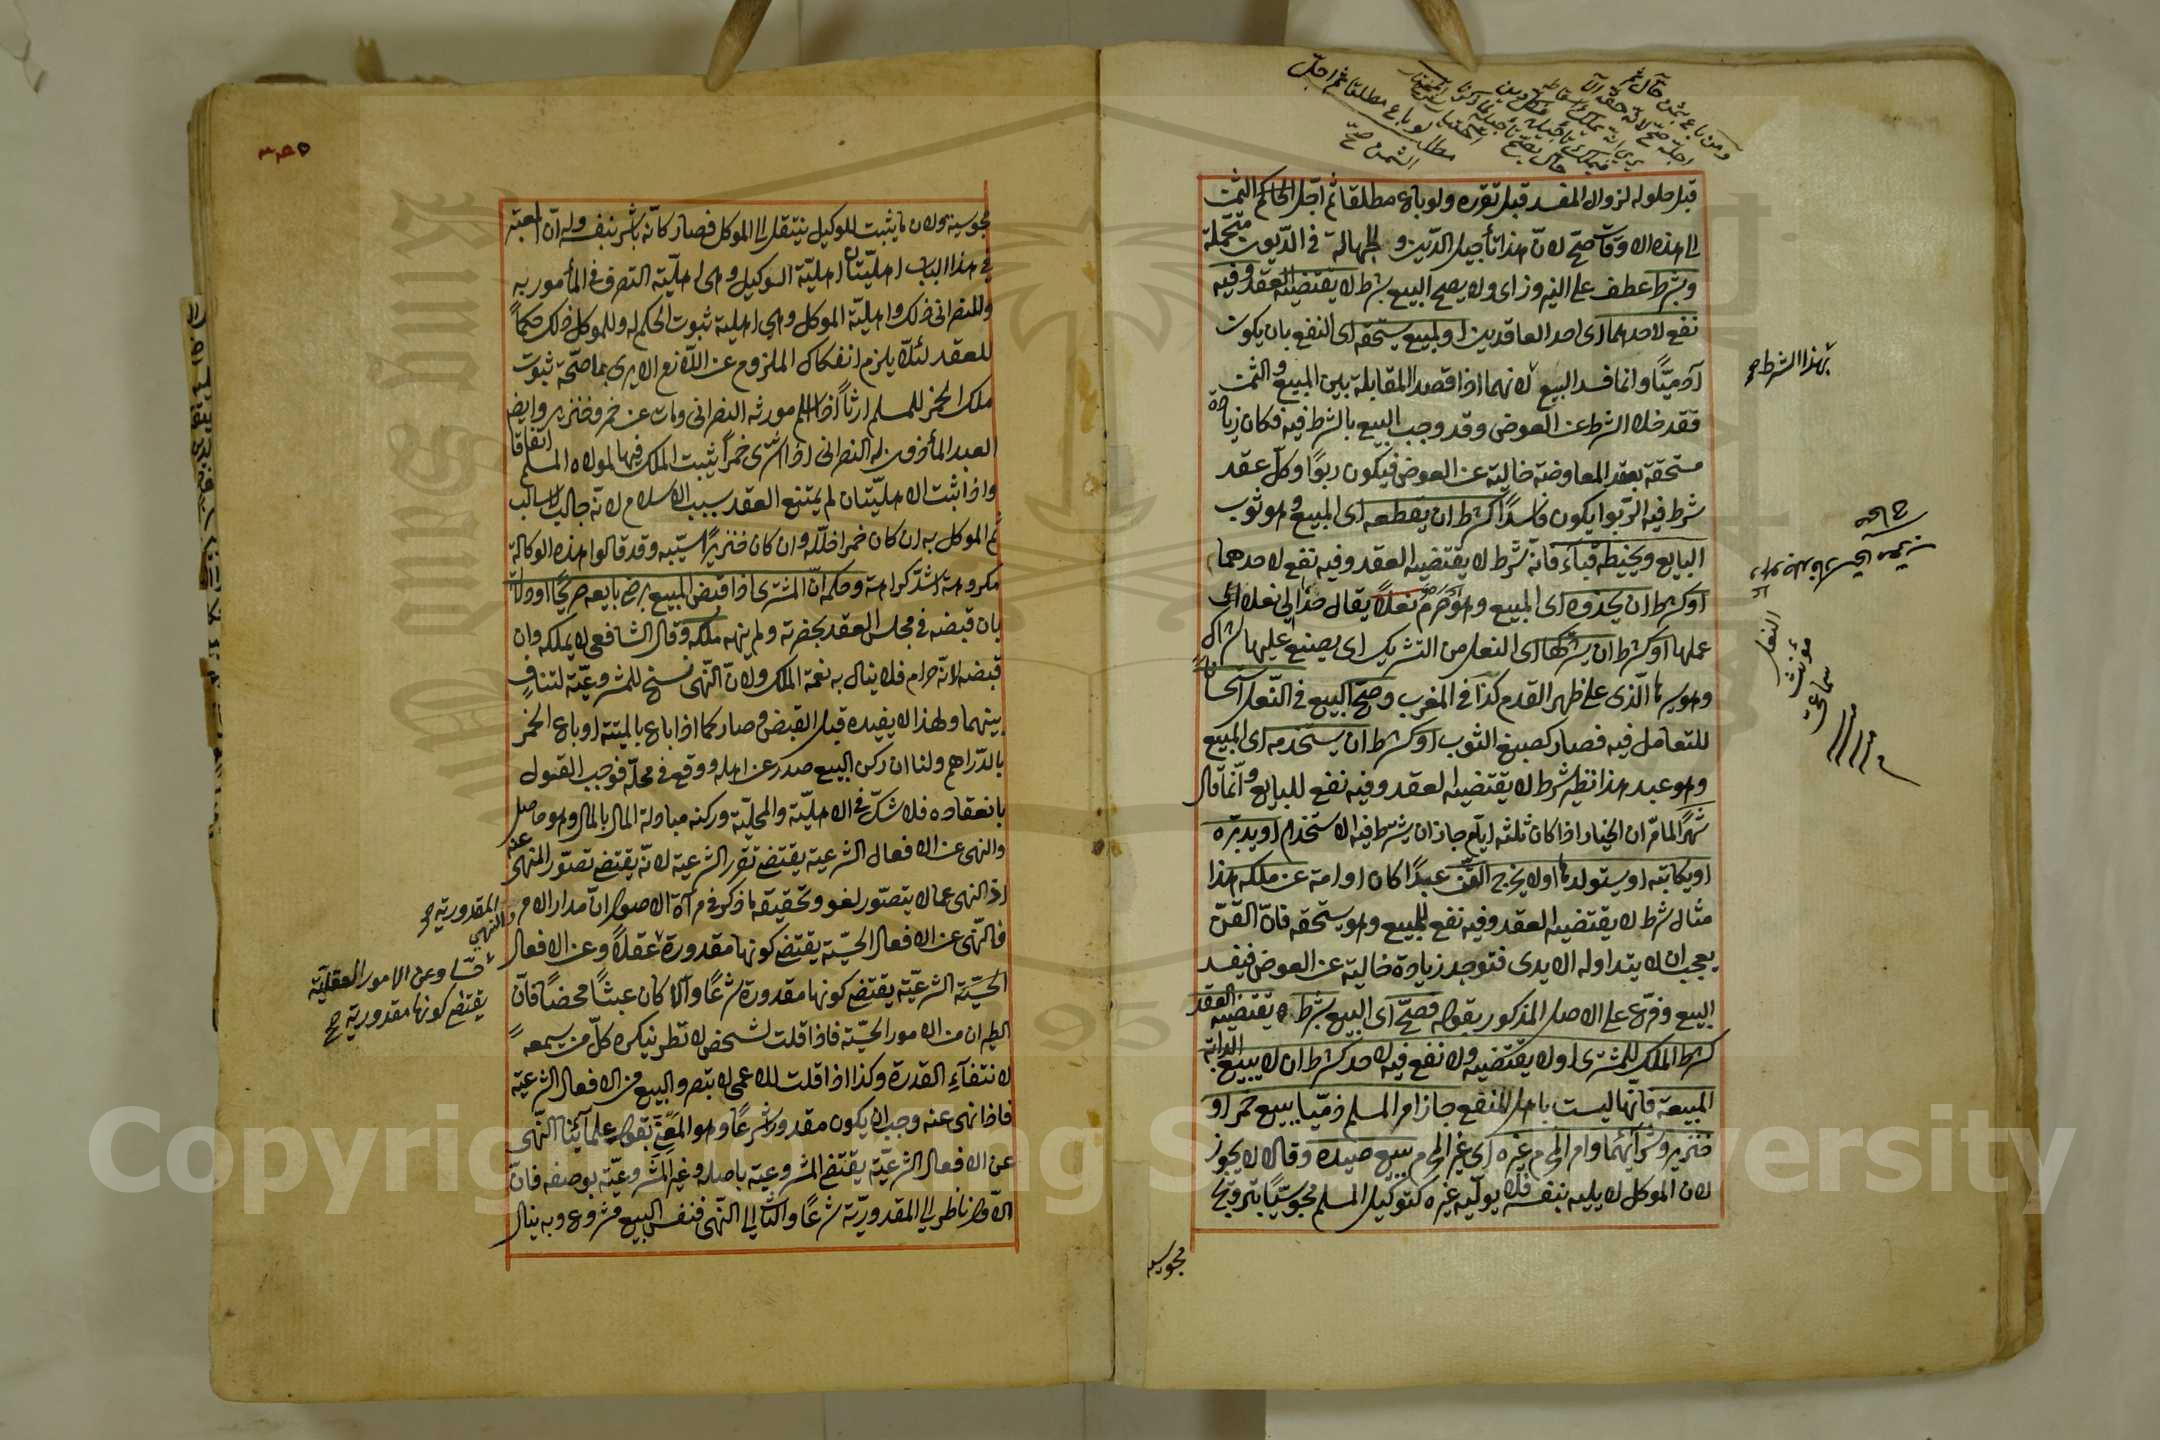 قبل حلوله لزوال المفسد قبل تقرره ولو باع مطلقا ثم اجل الحاكم الثمن
الى هذه الاوقات صح لان هذا تأجيل الدين و الجهالة في الديون متحملة
وبشرط عطف على النيروز اى ولا يصح البيع بشرط لا يقتضيه العقد وفيه
نفع لاحدهما اى احد العاقدين او لمبيع يستحقه اى النفع بان يكون
آدميًا وانما فسد البيع لانهما اذا قصدا المقابلة بين المبيع والثمن
فقد خلا الشرط عن العوض وقد وجب البيع بالشرط فيه فكان زيادة
مستحقة بعقد المعاوضة خالية عن العوض فيكون ربوًا وكل عقد
شرط فيه الربوا يكون فاسدًا كشرط ان يقطعه اى المبيع وهو ثوب
البايع ويخيطه قباءً فانه شرط لا يقتضيه العقد وفيه نفع لاحدهما
او كشرط ان يحذوه اى المبيع وهو صرم نعلاً يقال حذا لى نعلا اى
عملها او كشرط ان يشركها اى النعل من التشريك اى يصنع عليها شراك
وهو سيرها الذى على ظهر القدم كذا في المغرب وصح البيع في النعل استحسانا
للتعامل فيه فصار كصبغ الثوب او كشرط ان يستخدمه اى المبيع
وهو عبد هذا نظير شرط لا يقتضيه العقد وفيه نفع للبايع وانما قال
شهرًا لما مر ان الخيار اذا كان ثلثة ايام جاز ان يشترط فيه الاستخدام او يدبره
او يكاتبه او يستولدها او لا يخرج القن عبدًا كان او امة عن ملكه هذا
مثال شرط لا يقتضيه العقد وفيه نفع للمبيع وهو يستحقه فان القن
يعجبه ان لا يتداوله الايدى فتوجد زيادة خالية عن العوض فيفسد
البيع وفرع على الاصل المذكور بقوله فصح اى البيع بشرط يقتضيه العقد
كشرط الملك للمشترى او لا يقتضيه ولا نفع فيه لاحد كشرط ان لا يبيع الدابة
المبيعة فانها ليست باهل للنفع جاز امر المسلم ذميا ببيع خمر او
خنزير وشرائهما وامر المحرم غيره اى غير المحرم ببيع صيده وقالا لا يجوز
لان الموكل لا يليه بنفسه فلا يوليه غيره كتوكيل المسلم مجوسيًا بتزويج
مجوسية
لو باع مطلقا ثم اجل
الثمن صح
بهذا الشرط صح
النعل
مؤنث
سماعى
مجوسية ولان ما يثبت للوكيل ينتقل الى الموكل فصار كانه باشر بنفسه وله ان المعتبر
في هذا الباب اهليتان اهلية الوكيل وهى اهلية التصرف في المأمور به
وللنصرانى ذلك واهلية الموكل وهى اهلية ثبوت الحكم له وللموكل ذلك حكماً
للعقد لئلا يلزم انفكاك الملزوم عن اللازم الا يرى بما صحة ثبوت
ملك الخمر للمسلم ارثاً اذا اسلم مورثه النصرانى ومات عن خمر وخنزير وايضا
العبد المأذون له النصرانى اذا اشترى خمراً يثبت الملك فيها لمولاه المسلم اتفاقا
واذا ثبت الاهليتان لم يمتنع العقد بسبب الاسلام لانه جالب لا سالب
ثم الموكل به ان كان خمرا خلله وان كان خنزيراً سيبه وقد قالوا هذه الوكالة
مكروهة اشد كراهة وحكمه ان المشترى اذا قبض المبيع برضى بايعه صريحًا او دلالة
بان قبضه في مجلس العقد بحضرته ولم ينهه ملكه وقال الشافعى لا يملكه وان
قبضه لانه حرام فلا ينال به نعمة الملك ولان النهى نسخ للمشروعية لتناف
بينهما ولهذا لا يفيده قبل القبض وصار كما اذا باع بالميتة او باع الخمر
بالدراهم ولنا ان ركن البيع صدر عن اهله ووقع في محله فوجب القول
بانعقاده فلا شك في الاهلية والمحلية وركنه مبادلة المال بالمال وهو حاصل
والنهى عن الافعال الشرعية يقتضى تقرر الشرعية لانه يقتضى تصور المنهى عنه
اذ النهى عما لا يتصور لغو وتحقيقه ما ذكر في مرآة الاصول ان مدار الامر والنهى
فالنهى عن الافعال الحسية يقتضى كونها مقدورة عقلاً وعن الافعال
الحسية الشرعية يقتضى كونها مقدورة شرعًا والا كان عبثًا محضًا فان
الطيران من الامور الحسية فاذا قلت لشخص لا تطر ينكره كل من يسمعه
لانتفاء القدرة وكذا اذا قلت للاعمى لا تبصر والبيع من الافعال الشرعية
فاذا نهى عنه وجب ان يكون مقدورا شرعًا وهو المعنى بقول علمائنا النهى
عن الافعال الشرعية يقتضى المشروعية باصله وغير المشروعية بوصفه فان
الاول ناظر الى المقدورية شرعًا والثانى الى النهى فنفس البيع مشروع وبه ينال
المقدورية صح
حسًا وعن الامور العقلية
يقتضى كونها مقدورية صح
Copyright © King Saud University
King Saud University
1957